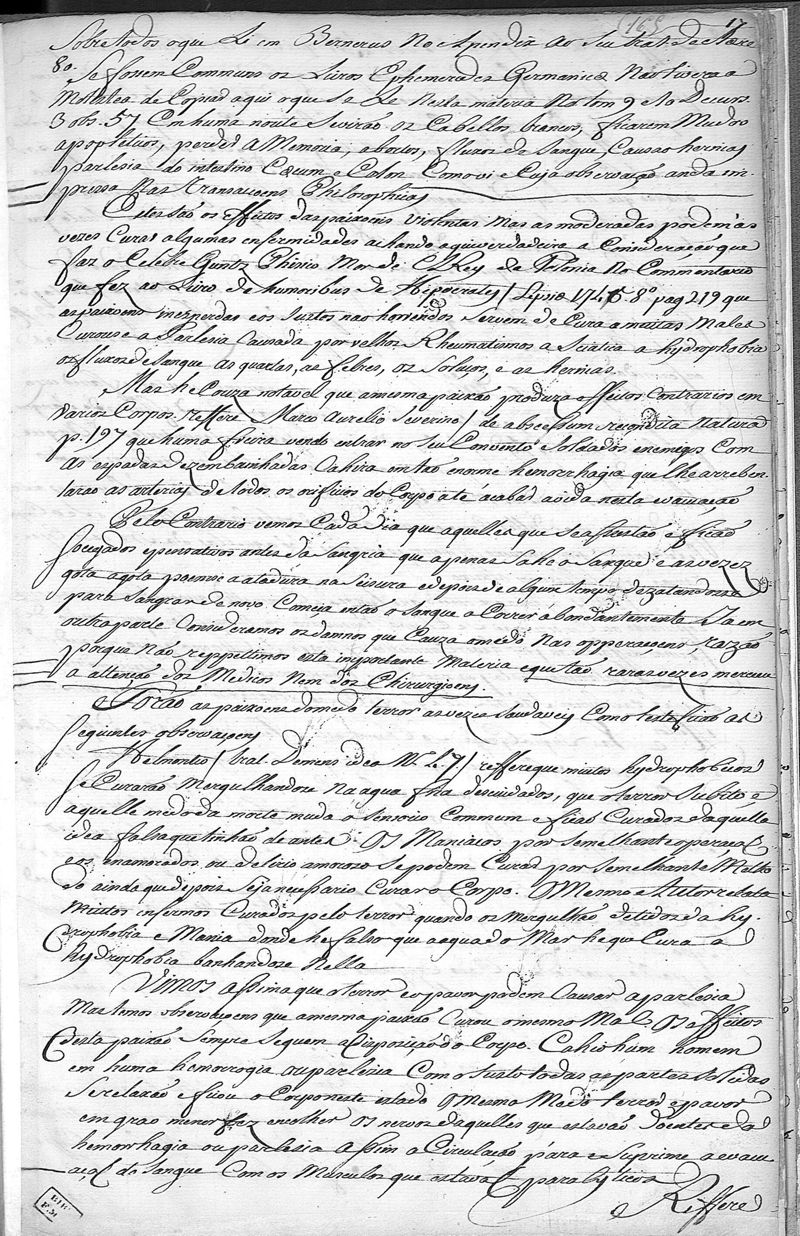 (165 17
Sobre todos o que Li em Bernerus No Apendix Ao Seu trat. de
8º Se fossem Communs os Livros Ephemerades Germanicæ Não tivera a
Molestea de Copiar aqui o que se Le Nesta materia No tom 9 e 10 Decurs.
3 obs. 57 Em huma noute Se virão os Cabellos brancos, ficarem Mudos
apopleticos, perder a Memoria, abortos, fluxos de Sangue Causao hernias
parlesia do intestino Cæcum e Colon Como vi e Cuja observação anda im-
pressa Nas transacoens Philosophicas
Estes são os effeitos das paixoens violentas Mas as moderadas podem as
vezes Curar algumas enfermidades achando aqui verdadeira a Consideração que
faz o Celebre Guntz Phisico Mor de ElRey de Polonia No Commentario
que fez ao Livro de humoribus de Hipocrates / Lipsiæ 1745 8º pag 219 que
as paixoens inesperadas e os Sustos não horrendos Servem de Cura a muitas Males
Curouse a Parlesia Causada por velhos Rheumatismos a Sciatica a hydrophobia
os fluxos de Sangue As quartas, as febres, os Soluços, e as hernias.
Mas he Couza notavel que a mesma paixão produza effeitos Contrarios em
varios Corpos. reffere Marco Aurelio Severino / de abscessum recondita Natura
p. 197 que huma freira vendo entrar no Seu Convento Soldados enemigos Com
As espadas dezembainhadas Cahira em tão enorme hemorrhagia que lhe arreben-
tarão as arterias de todos os orificios do Corpo até acabar a vida nesta evacuação
Pelo Contrario vemos Cada dia que aquelles que se assustão e ficão
Socegados e pensativos antes da Sangria que apenas Sahe o Sangue e as vezes
gota a gota poemse a atadura na Scisura e depois de algum tempo dezatandosse
para Sangrar de novo Começa então o Sangue a Correr abondantemente Ja em
outra parte Consideramos os damnos que Cauza o medo Nas opperaçoens, razão
porque não reppettimos esta importante Materia e que tão raras vezes mereceu
a attenção dos Medicos Nem dos Chirurgioens.
as paixoens do medo terror as vezes Saudaveis Como testeficão as
Seguintes observaçoens
Helmontio / trat. Demens idea Nº. 47 / reffere que muitos hydrophobicos
Se Curarão Mergulhandose Na agua fria descuidados, que o terror Subito, e
aquelle medo da morte muda o Sensorio Commum e ficão Curados daquella
idea falsa que tinhão de antes. Os Maniacos por Semelhante operação
e os enamorados ou delirio amoroso Se podem Curar por Semelhante Metho
do ainda que depois Seja necessario Curar o Corpo. O Mesmo Autor relata
Muitos infermos Curados pelo terror quando os Mergulhão detidos da hy-
drophobia e Mania donde he falso que a agua do Mar he que Cura a
hydrophobia banhandose Nella
Vimos assima que o terror e o pavor podem Causar a parlesia
Mas temos observaçoens que a mesma paixão Curou o mesmo Mal. Os effeitos
desta paixão Sempre Seguem a Disposição do Corpo. Cahio hum homem
em huma hemorrogia ou parlesia Com o Susto todas as partes Solidas
Se relaxão e ficou o Corpo neste estado O mesmo Medo terror e pavor
em grao menor faz encolher os nervos daquelles que estavão doentes da
hemorrhagia ou parlesia Assim a Circulação pára e Suprime a evacu
açaõ do Sangue Com os Musculos que estavaõ paralyticos
Reffere